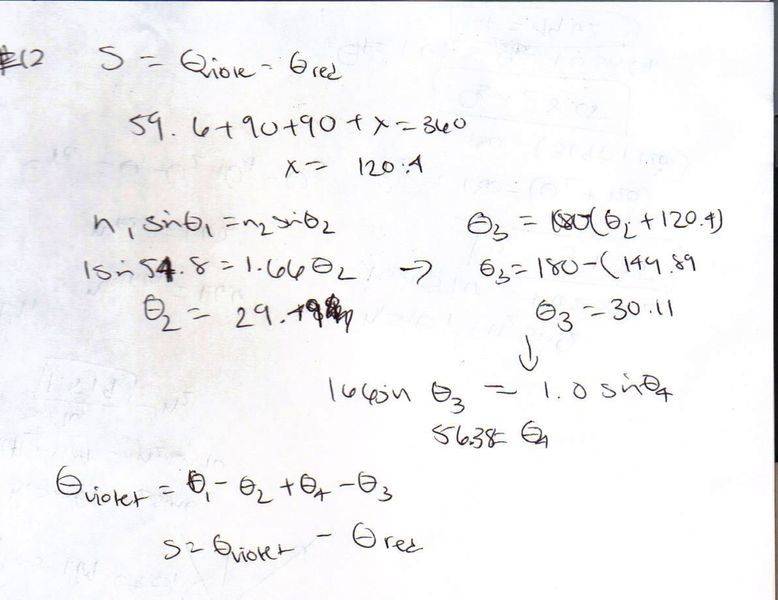 #12 S = θviole - θred
59.6+90+90+x=360
x= 120.4
n₁sinθ₁=n₂sinθ₂
θ₃ = 180-(θ₂+120.4)
1sin54.8=1.66θ₂ →
θ₃=180-(149.89
θ₂ = 29.
θ₃=30.11
↓
1.66sin θ₃ = 1.0 sinθ₄
56.38= θ₄
θviolet = θ₁- θ₂+θ₄-θ₃
S=θviolet - θred